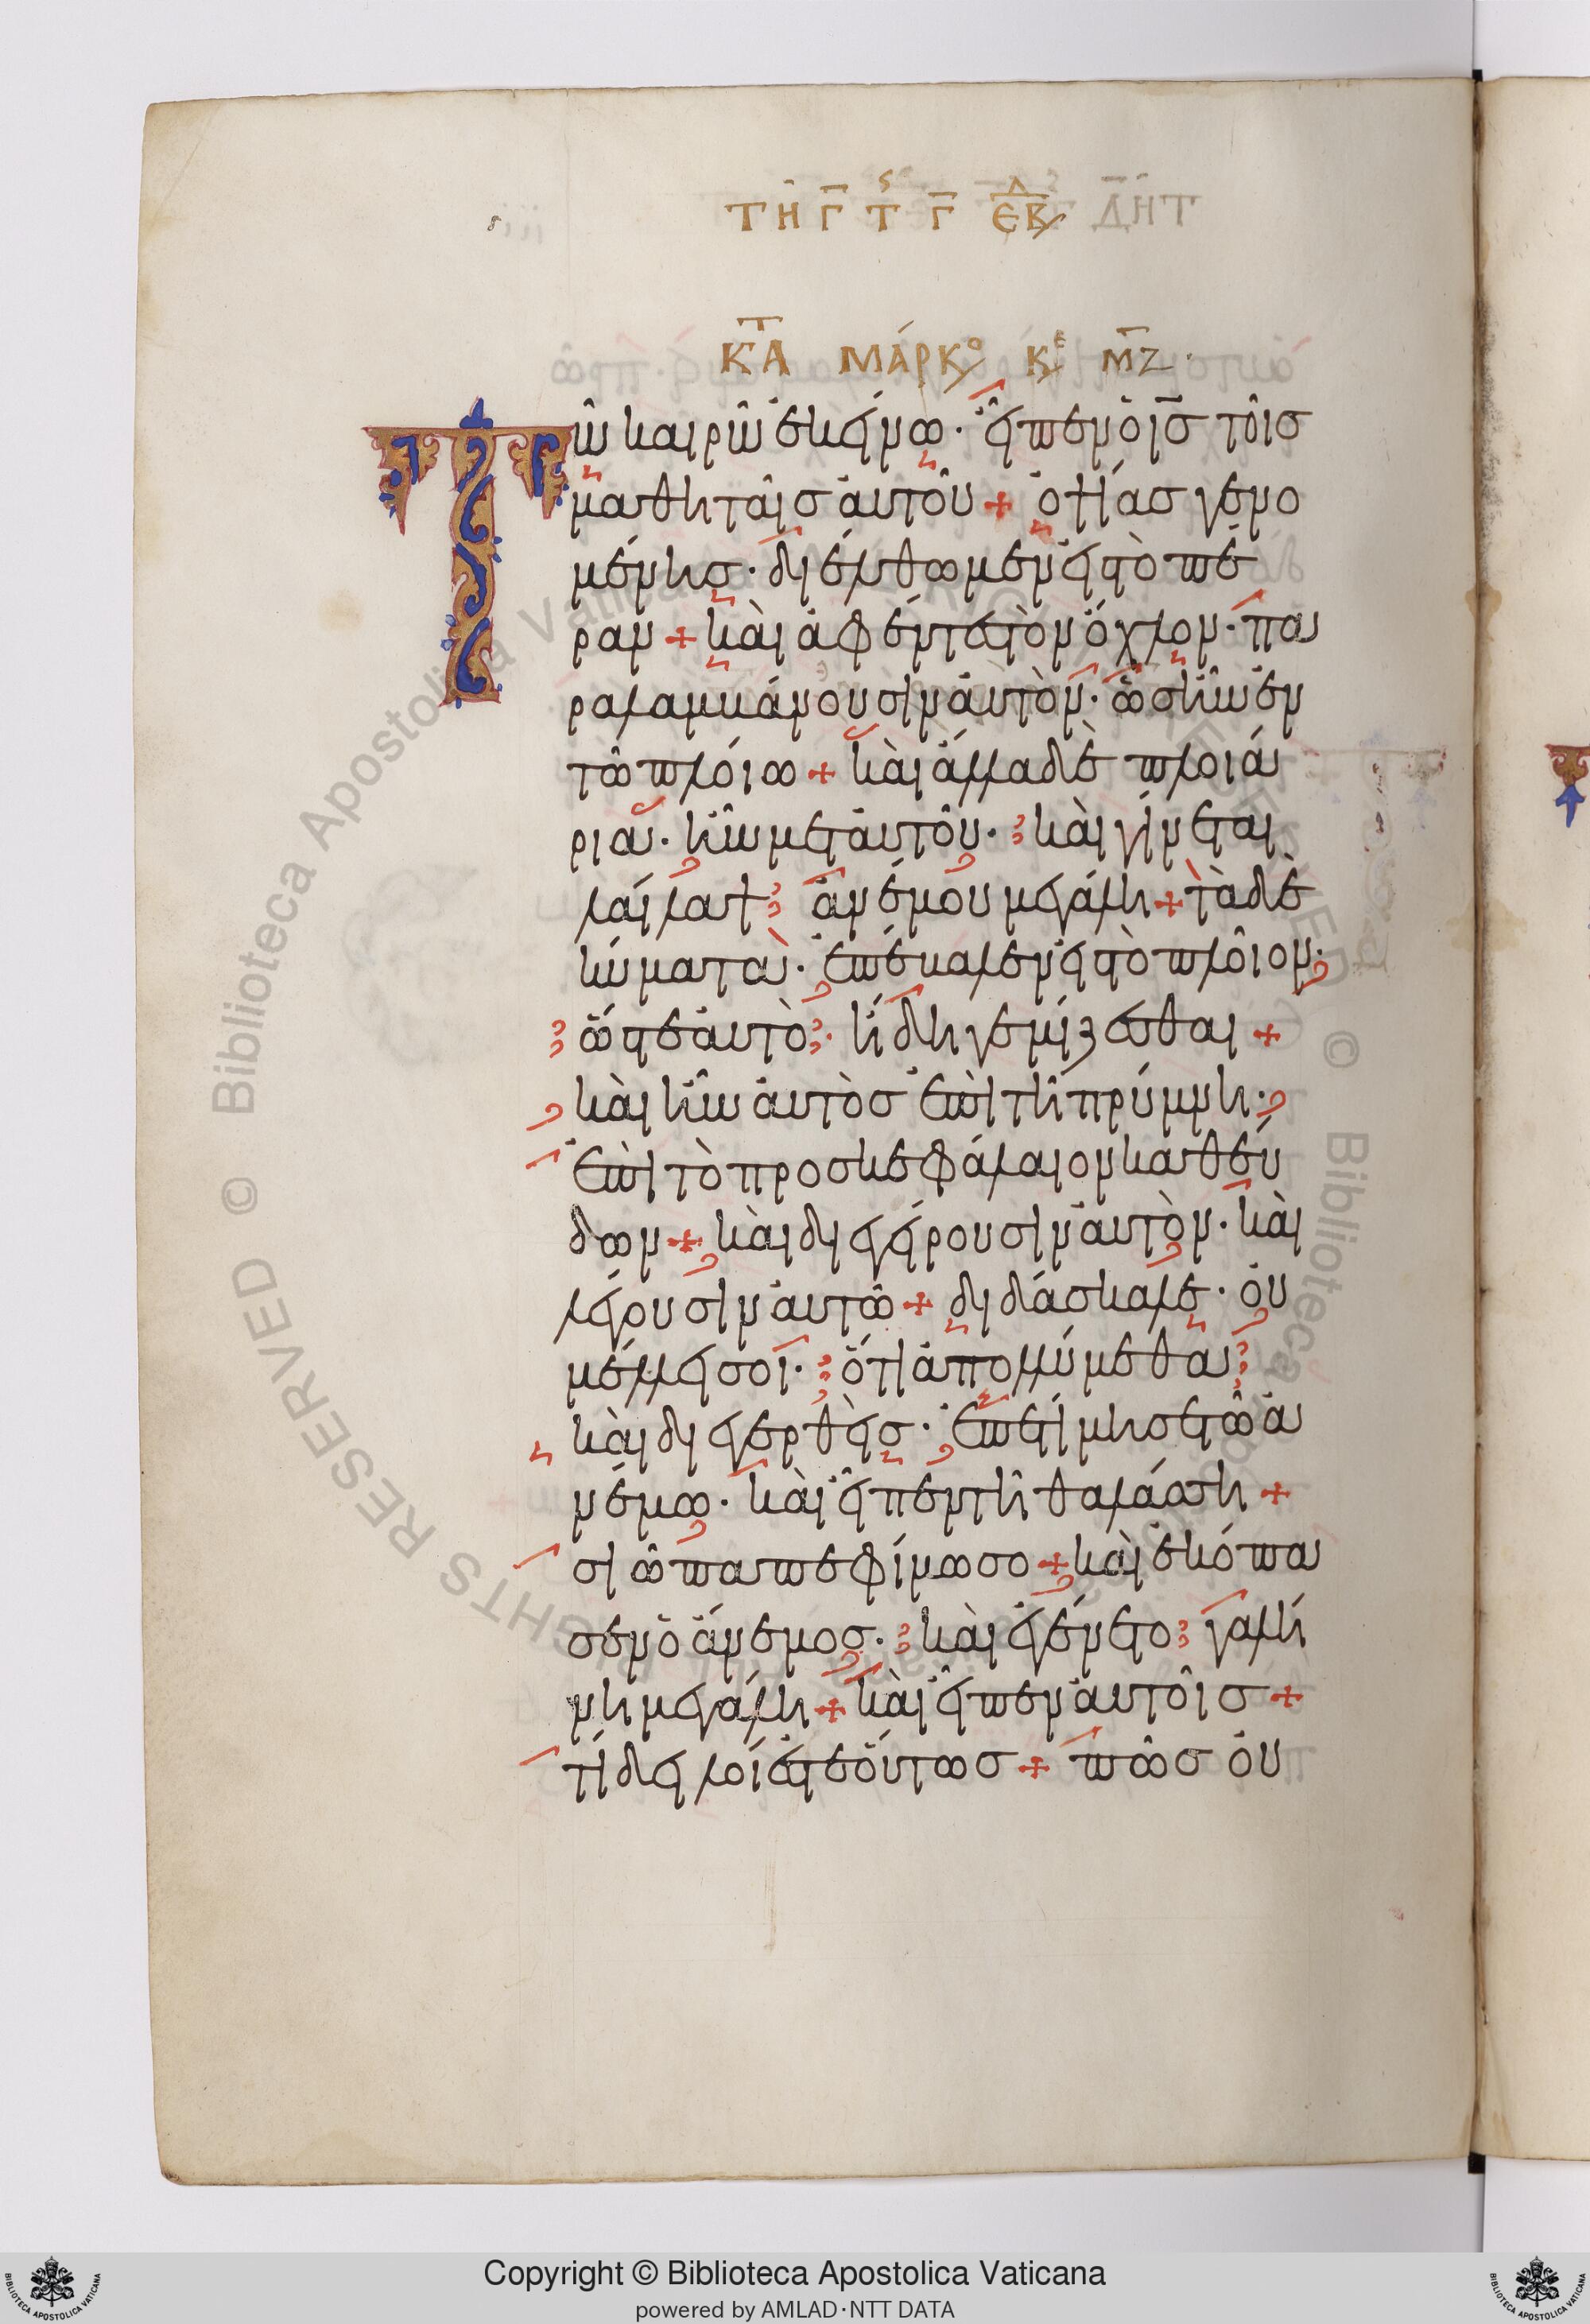 ΤΗ Γ Τ Γ ΕΒΔ
ΚΑΤ ΜΑΡΚΟ ΚΕ ΜΖ
Τῶ καιρῶ ἐκείνω· εἶπεν ὁ ισ τοῖσ
μαθηταῖσ αὐτοῦ + ὀψίασ γενο
μένησ· διέλθωμεν εἰς τὸ πέ
ραν + καὶ ἀφέντες τὸν ὄχλον· πα
ραλαμβάνουσιν αὐτὸν· ὡσ ἦν ἐν
τῶ πλοίω + καὶ ἄλλα δὲ πλοιά
ρια· ἦν μετ αὐτοῦ· καὶ γίνεται
λαίλαψ ἀνέμου μεγάλη + τὰ δὲ
κύματα· ἐπέβαλεν εἰς τὸ πλοῖον·
ὥστε αὐτὸ· ἤδη γεμίζεσθαι +
καὶ ἦν αὐτὸσ ἐπὶ τῆ πρύμνη·
ἐπὶ τὸ προσκεφάλαιον καθεύ
δων + καὶ διεγείρουσιν αὐτὸν· καὶ
λέγουσιν αὐτῶ + διδάσκαλε· οὐ
μέλλει σοι· ὅτι ἀπολλύμεθα
καὶ διεγερθεὶσ· ἐπετίμησε τῶ ἀ
νέμω· καὶ εἶπεν τῆ θαλάσση +
σιώπα πεφίμωσο + καὶ ἐκόπα
σεν ὁ ἄνεμοσ· καὶ ἐγένετο γαλή
νη μεγάλη + καὶ εἶπεν αὐτοῖσ +
τί δειλοί ἐστε οὕτωσ + πῶσ οὐ
Copyright © Biblioteca Apostolica Vaticana
powered by AMLAD·NTT DATA